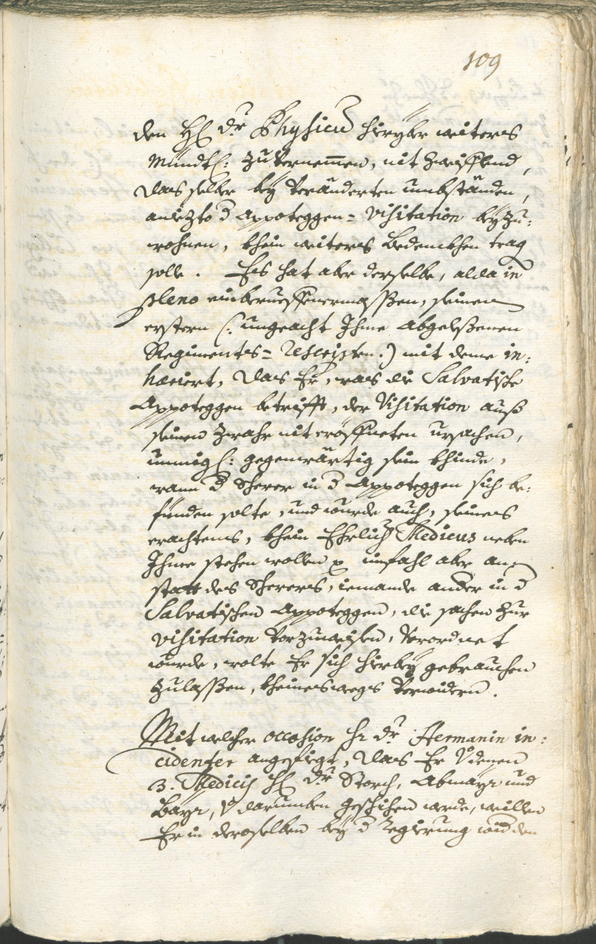 109
den H: dr Physicu hieryber weiters
mündtl: zuvernemen, nit zweiflend,
das selbe bey veränderten umbständen,
aniezto d Appoteggen-Visitation beyzu:
wohnen, khein weiters bedenckhen trag
solle. Es hat aber derselbe, als da in
pleno einberueffnermassen, seinem
erstern (: ungeacht Ihme abgelesenen
Regiments-Rescripten:) mit deme in:
haeriert, das Er, was die Salvatische
Appoteggen betrifft, der Visitation auß
seinen zwahr nit eröffneten ursachen,
unmigl: gegenwärtig sein khinde,
wann d Scherer in d Appoteggen sich be:
finden solte, und wurde auch, seines
erachtens, khein Ehrlich Medicus neben
Ihme stehen wollen, im fahl aber an:
statt des Scherers, iemandt ander in d
Salvatischen Appoteggen, die sachen zur
Visitation vorzuweisen, verordnet
wurde, wolte Er sich hierbey gebrauchen
zulassen, kheinesweegs verwidern.
Mit welcher occasion H: dr Hermanin in:
cidenter angefiegt, das Er denen
3. Medicis H: dr Storch, Abmayr und
Bayr, darumben geschehen werde, weillen
Er in deroselben bey d Regierung wid den